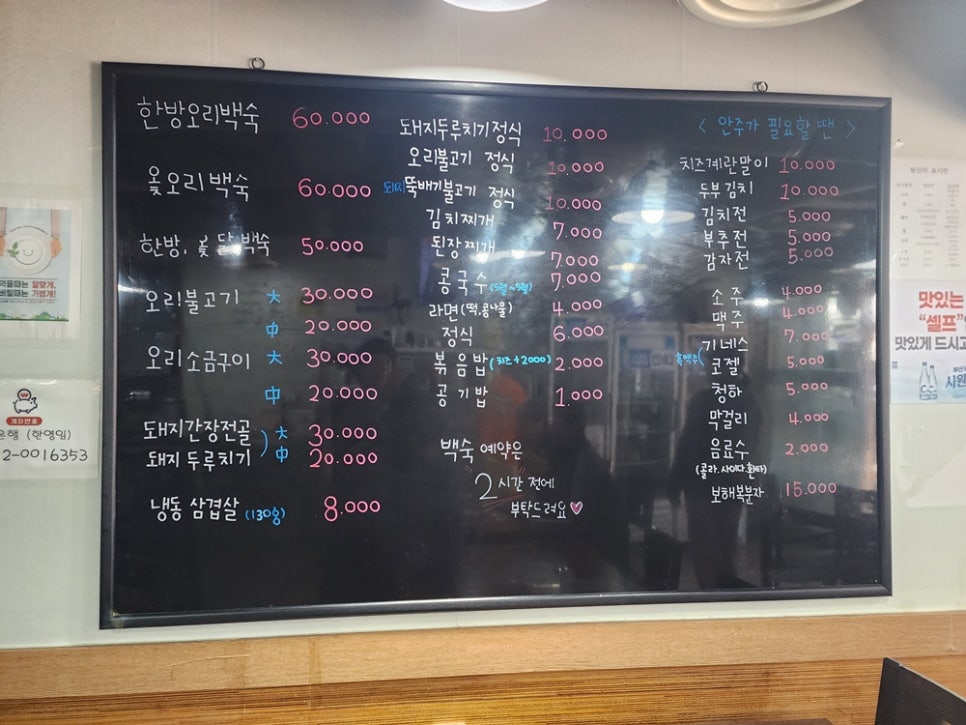 한방오리백숙 60.000
옻오리백숙 60.000
한방, 옻 닭백숙 50.000
오리불고기 大 30.000
中 20.000
오리소금구이 大 30.000
中 20.000
돼지간장전골
돼지두루치기
) 大 30.000
中 20.000
냉동 삼겹살 (130g) 8.000
돼지두루치기정식 10.000
오리불고기 정식 10.000
돼지뚝배기불고기 정식 10.000
김치찌개 7.000
된장찌개 7.000
콩국수 (5월~9월) 7.000
라면 (떡,콩나물) 4.000
정식 6.000
볶음밥 (치즈+2000) 2.000
공기밥 1.000
백숙 예약은
2시간 전에
부탁드려요♡
< 안주가 필요할 땐 >
치즈계란말이 10.000
두부김치 10.000
김치전 5.000
부추전 5.000
감자전 5.000
소주 4.000
맥주 4.000
기네스 7.000
흑맥주( 코젤 5.000
청하 5.000
막걸리 4.000
음료수 2.000
(콜라.사이다.환타)
보해복분자 15.000
먹을때는 알맞게,
버릴때는 가볍게!
계좌번호
은행 (한영임)
2-0016353
원산지 표시판
맛있는
"셀프"
맛있게 드시고
시원